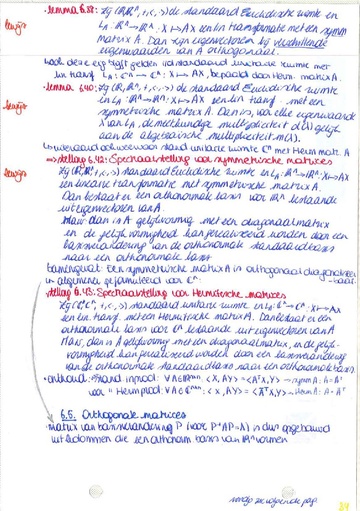 • lemma 6.38: Zij (ℝ,ℝⁿ,+,<,>) de standaard Euclidische ruimte en
bewijs
L_A: ℝⁿ→ℝⁿ: X↦AX een lin transformatie met een symm
matrix A. Dan zijn eigenvectoren bij verschillende
eigenwaarden van A orthogonaal.
ook deze eig blijft gelden in standaard unitaire ruimte met
lin transf. L_A: ℂⁿ→ℂⁿ: X↦AX, bepaald door Herm. matrix A.
• lemma 6.40: Zij (ℝ,ℝⁿ,+,<,>) de standaard Euclidische ruimte
bewijs
en L_A: ℝⁿ→ℝⁿ: X↦AX een lin transf. met een
symmetrische matrix A. Dan is, voor elke eigenwaarde
λ van L_A, de meetkundige multipliciteit d(λ) gelijk
aan de algebraïsche multipliciteit m(λ).
ook weer voor stand unitaire ruimte ℂⁿ met Herm matr. A
⇒ stelling 6.42: Spectraalstelling voor symmetrische matrices
bewijs
Zij (ℝ,ℝⁿ,+,<,>) standaard Euclid ruimte en L_A: ℝⁿ→ℝⁿ: X↦AX
een lineaire transformatie met symmetrische matrix A.
Dan bestaat er een orthonormale basis voor ℝⁿ bestaande
uit eigenvectoren van A.
Dan is A gelijkvormig met een diagonaalmatrix
en de gelijkvormigheid kan gerealiseerd worden door een
basisverandering van de orthonormale standaardbasis
naar een orthonormale basis
Een symmetrische matrix A is orthogonaal diagonaliseerbaar.
in algemene geformuleerd voor ℂⁿ:
• stelling 6.43: Spectraalstelling voor Hermitische matrices
Zij (ℂ,ℂⁿ,+,<,>) standaard unitaire ruimte en L_A: ℂⁿ→ℂⁿ: X↦AX
een lin transf. met een Hermitische matrix A. Dan bestaat er een
orthonormale basis voor ℂⁿ bestaande uit eigenvectoren van A
dan is A gelijkvormig met een diagonaalmatrix, en de gelijk-
vormigheid kan gerealiseerd worden door een basisverandering
van de orthonormale standaardbasis naar een orthonormale basis.
• onthoud: stand inprod:
6.6. Orthogonale matrices
• matrix van basisverandering P (voor P⁻¹AP=Λ) is dus opgebouwd
uit kolommen die een orthonorm basis van ℝⁿ vormen